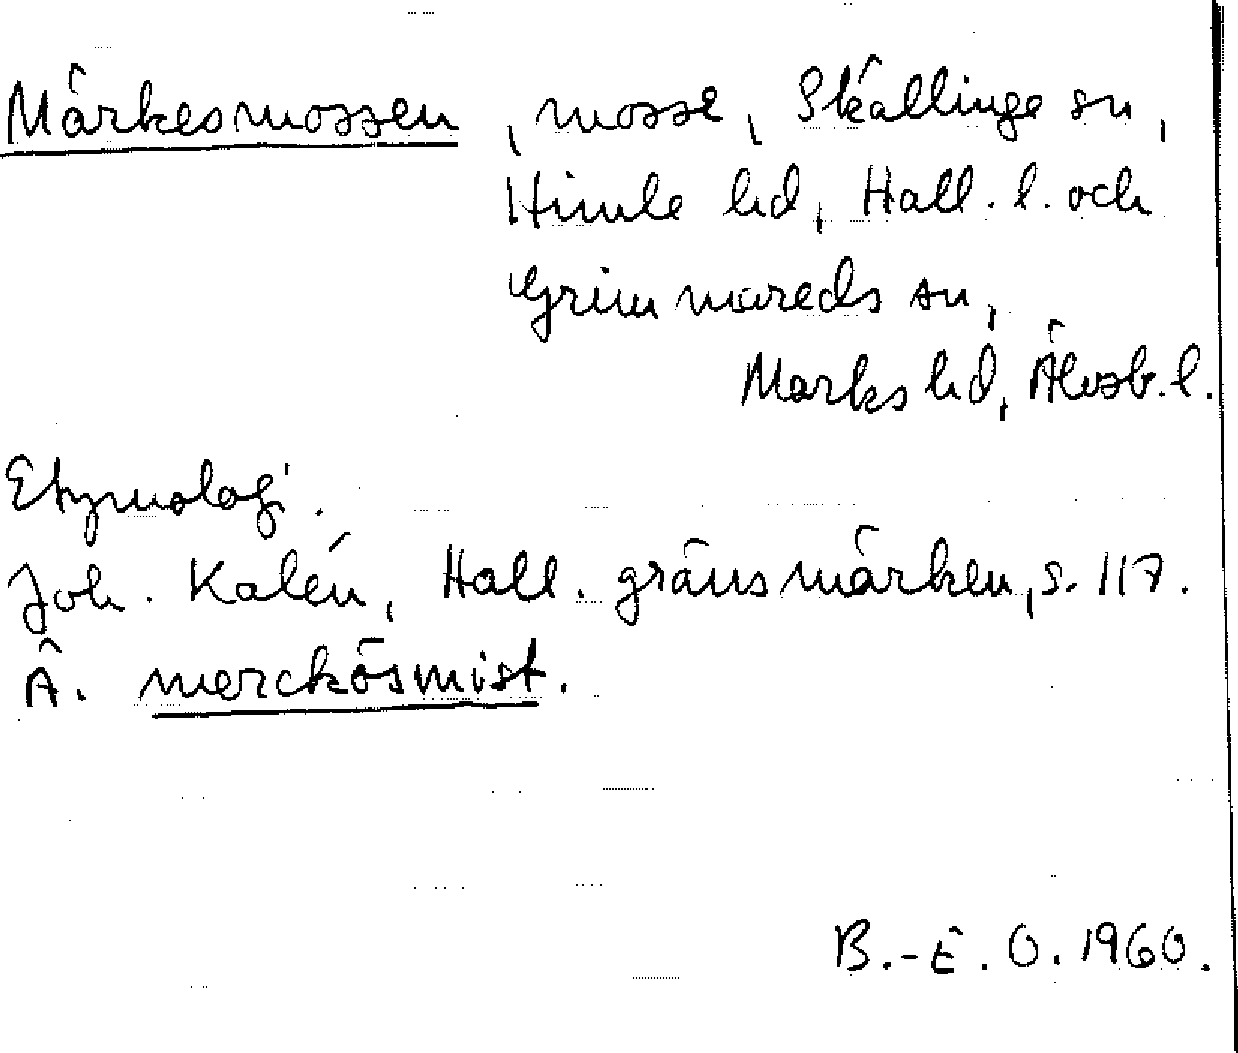 Märkesmossen, mosse, Skällinge sn,
Himle hd, Hall. l. och
Grimmareds sn,
Marks hd, Älvsb. l.
Etymologi.
Joh. Kalén, Hall. gränsmärken, s. 117.
Ä. merckösmist.
B.-E. O. 1960.